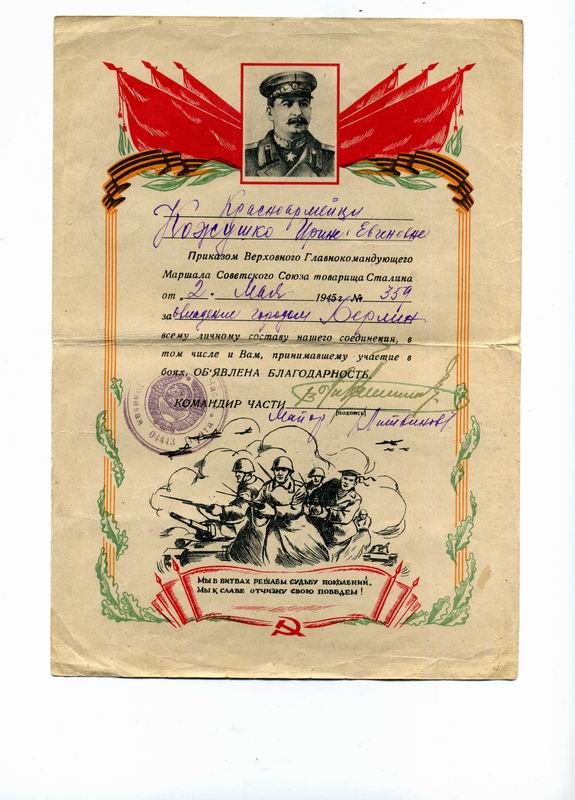 Красноармейцу
Кожушко Ирине Евгеновне
Приказом Верховного Главнокомандующего
Маршала Советского Союза товарища Сталина
от „2" Мая 1945 г. № 359
за овладение городом Берлин
всему личному составу нашего соединения, в
том числе и Вам, принимавшему участие в
боях, ОБ'ЯВЛЕНА БЛАГОДАРНОСТЬ
КОМАНДИР ЧАСТИ
(подпись)
Майор Литвинов
04443
МЫ В БИТВАХ РЕШАЕМ СУДЬБУ ПОКОЛЕНИЙ,
МЫ К СЛАВЕ ОТЧИЗНУ СВОЮ ПОВЕДЕМ!